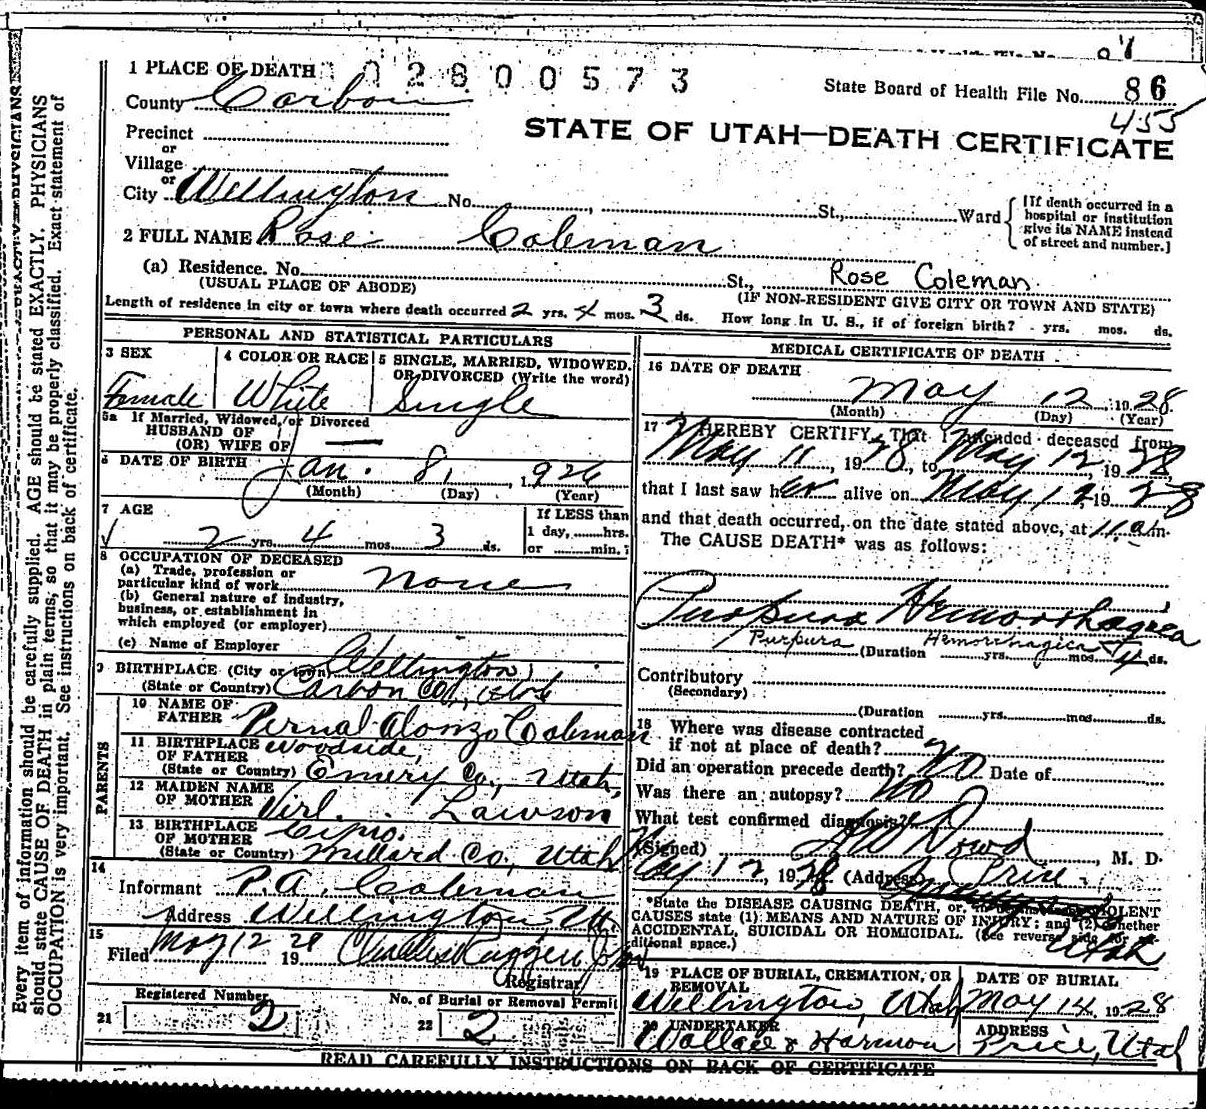 1 PLACE OF DEATH 02800573
State Board of Health File No. 86
455
County Carbon
STATE OF UTAH—DEATH CERTIFICATE
Precinct
or
Village
or
City Wellington No. , St., Ward
[If death occurred in a hospital or institution give its NAME instead of street and number.]
2 FULL NAME Rose Coleman
(a) Residence. No. St., Rose Coleman
(USUAL PLACE OF ABODE) (IF NON-RESIDENT GIVE CITY OR TOWN AND STATE)
Length of residence in city or town where death occurred 2 yrs. 4 mos. 3 ds. How long in U. S., if of foreign birth? yrs. mos. ds.
PERSONAL AND STATISTICAL PARTICULARS
3 SEX 4 COLOR OR RACE 5 SINGLE, MARRIED, WIDOWED,
OR DIVORCED (Write the word)
Female White Single
5a If Married, Widowed, or Divorced
HUSBAND OF
(OR) WIFE OF —
6 DATE OF BIRTH Jan. 8, 1926
(Month) (Day) (Year)
7 AGE If LESS than
1 day, hrs.
2 yrs. 4 mos. 3 ds. or min.
8 OCCUPATION OF DECEASED
(a) Trade, profession or
particular kind of work none
(b) General nature of industry,
business, or establishment in
which employed (or employer)
(c) Name of Employer
9 BIRTHPLACE (City or town) Wellington
(State or Country) Carbon Co., Utah
PARENTS
10 NAME OF
FATHER Pernal Alonzo Coleman
11 BIRTHPLACE Woodside,
OF FATHER
(State or Country) Emery Co., Utah,
12 MAIDEN NAME
OF MOTHER Virl. Lawson
13 BIRTHPLACE
OF MOTHER
(State or Country) Millard Co., Utah
14
Informant P.A. Coleman
Address Wellington Ut.
15
Filed May 12 1928
Registrar
Registered Number No. of Burial or Removal Permit
21 2 22 2
MEDICAL CERTIFICATE OF DEATH
16 DATE OF DEATH
May 12 1928
(Month) (Day) (Year)
17 I HEREBY CERTIFY, That I attended deceased from
May 11, 1928, to May 12 1928
that I last saw her alive on May 12 1928
and that death occurred, on the date stated above, at 11 a.m.
The CAUSE DEATH* was as follows:
Purpura Hemorrhagica
Purpura Hemorrhagica
(Duration yrs. mos. 4 ds.
Contributory
(Secondary)
(Duration yrs. mos. ds.
18 Where was disease contracted
if not at place of death?
Did an operation precede death? no Date of
Was there an autopsy? no
What test confirmed diagnosis?
(Signed) Dowd, M. D.
May 12, 1928 (Address) Price
Utah
*State the DISEASE CAUSING DEATH, or, in deaths from VIOLENT
CAUSES state (1) MEANS AND NATURE OF INJURY; and (2) whether
ACCIDENTAL, SUICIDAL OR HOMICIDAL. (See reverse side for additional space.)
19 PLACE OF BURIAL, CREMATION, OR
REMOVAL
Wellington, Utah
DATE OF BURIAL
May 14, 1928
20 UNDERTAKER
Wallace & Harmon
ADDRESS
Price, Utah
READ CAREFULLY INSTRUCTIONS ON BACK OF CERTIFICATE
Every item of information should be carefully supplied. AGE should be stated EXACTLY. PHYSICIANS
should state CAUSE OF DEATH in plain terms, so that it may be properly classified. Exact statement of
OCCUPATION is very important. See instructions on back of certificate.